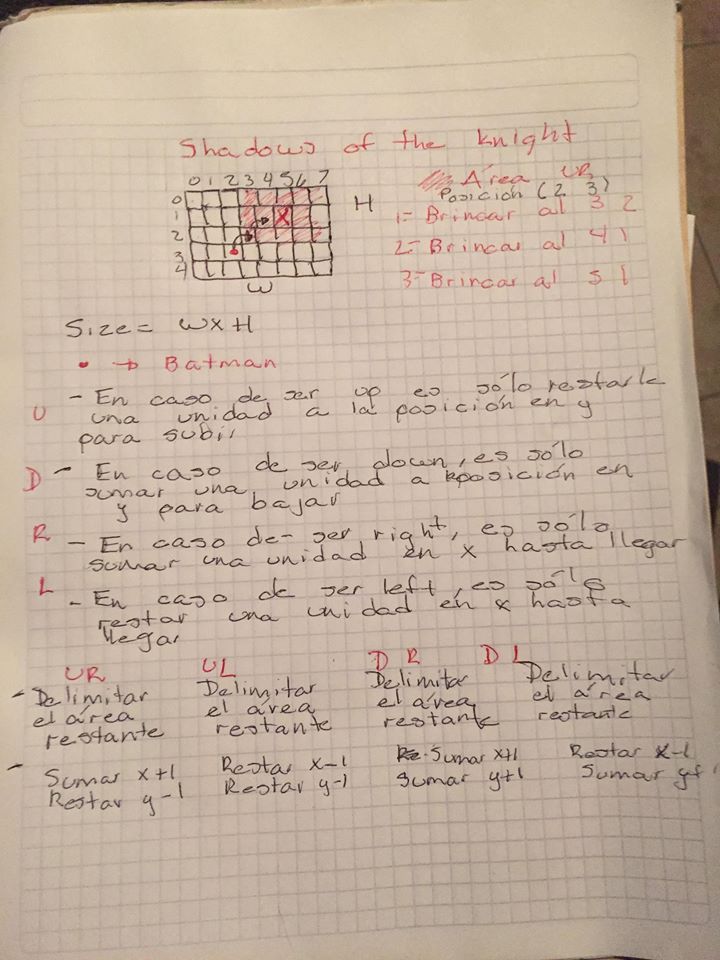 Shadows of the knight
0 1 2 3 4 5 6 7
0
1
2
3
4
X
H
W
Área UR
Posición (2 3)
1- Brincar al 3 2
2- Brincar al 4 1
3- Brincar al 5 1
Size = WxH
• → Batman
U - En caso de ser up es sólo restarle
una unidad a la posición en y
para subir
D - En caso de ser down, es sólo
sumar una unidad a posición en
y para bajar
R - En caso de ser right, es sólo
sumar una unidad en x hasta llegar
L - En caso de ser left, es sólo
restar una unidad en x hasta
llegar
UR UL DR DL
- Delimitar Delimitar Delimitar Delimitar
el área el área el área el área
restante restante restante restante
- Sumar x+1 Restar x-1 Sumar x+1 Restar x-1
Restar y-1 Restar y-1 Sumar y+1 Sumar y+